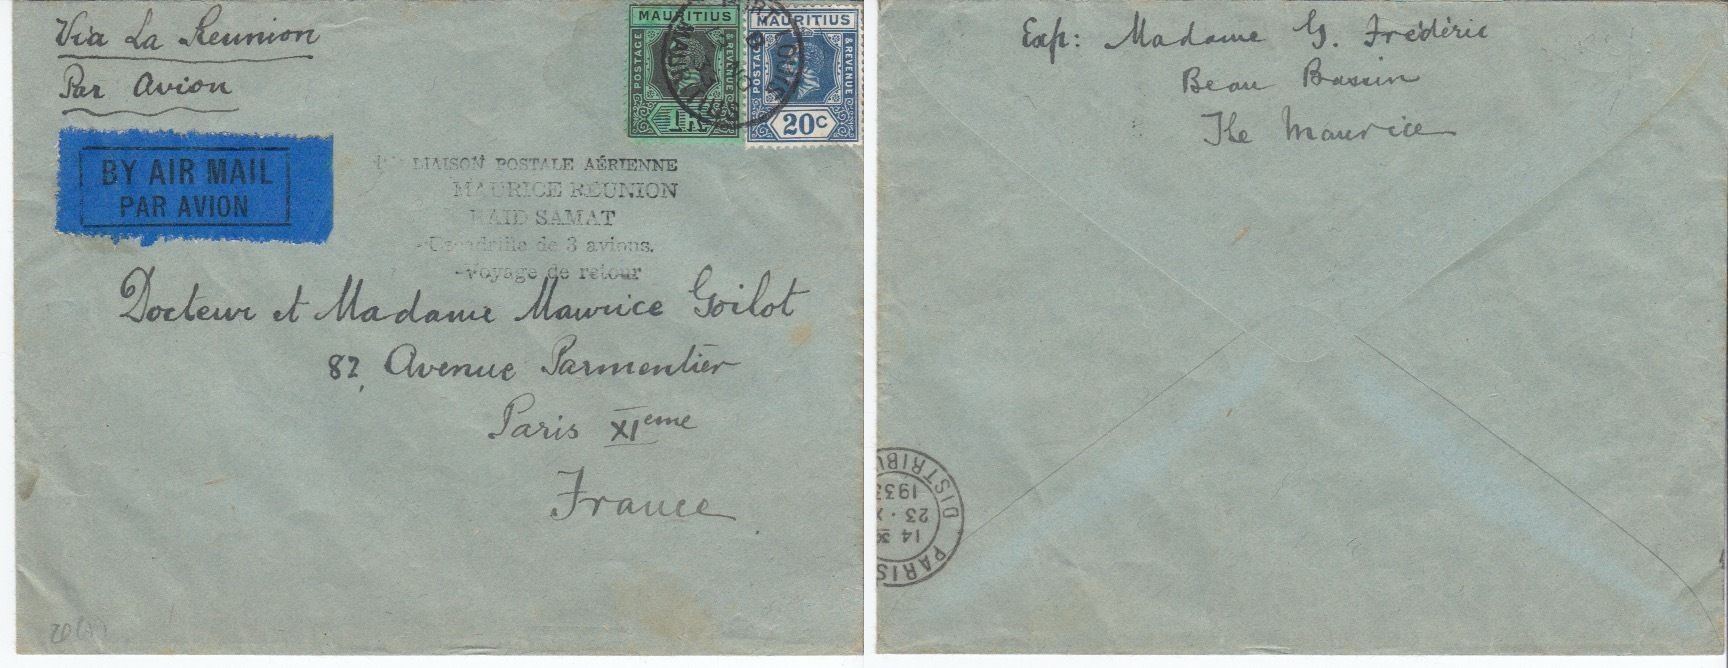 Via La Reunion
Par Avion
BY AIR MAIL
PAR AVION
MAURITIUS
POSTAGE
& REVENUE
1R
MAURITIUS
POSTAGE
& REVENUE
20C
LIAISON POSTALE AÉRIENNE
MAURICE REUNION
RAID SAMAT
Escadrille de 3 avions.
-Voyage de retour
Docteur et Madame Maurice Goilot
82, Avenue Parmentier
Paris XIeme
France
Exp: Madame G. Frédéric
Beau Bassin
Ile Maurice
PARIS
DISTRIBU
14 30
23 · X
1933